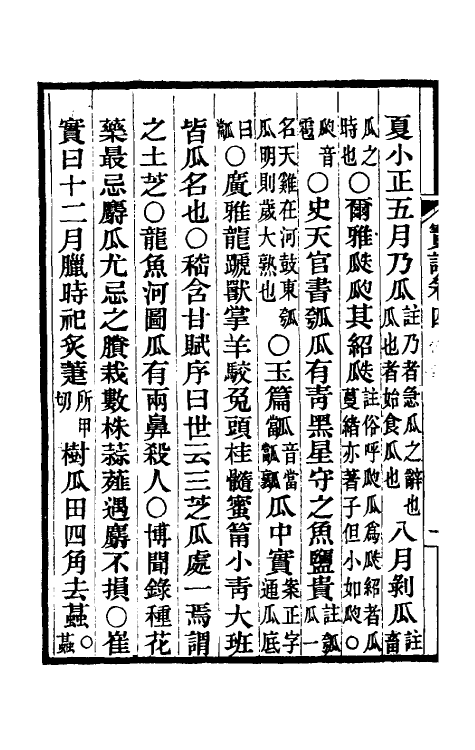 夏小正五月乃瓜註乃者急瓜之辭也瓜也者始食瓜也八月剥瓜註畜
瓜之時也○爾雅瓞瓝其紹瓞註俗呼瓝瓜爲瓞紹者瓜蔓緒亦著子但小如瓝○
瓝音雹○史天官書瓠瓜有青黑星守之魚鹽貴註瓠瓜一
名天雞在河鼓東瓠瓜明則歲大熟也○玉篇音當瓜中實案正字通瓜底
曰○廣雅龍蹏獸掌羊骹兔頭桂髓蜜筩小青大班
皆瓜名也○嵇含甘賦序曰世云三芝瓜處一焉謂
之土芝○龍魚河圖瓜有兩鼻殺人○博聞錄種花
藥最忌麝瓜尤忌之栽數株蒜薤遇麝不損○崔
實曰十二月臘時祀炙萐所甲切樹瓜田四角去蟲○蟲